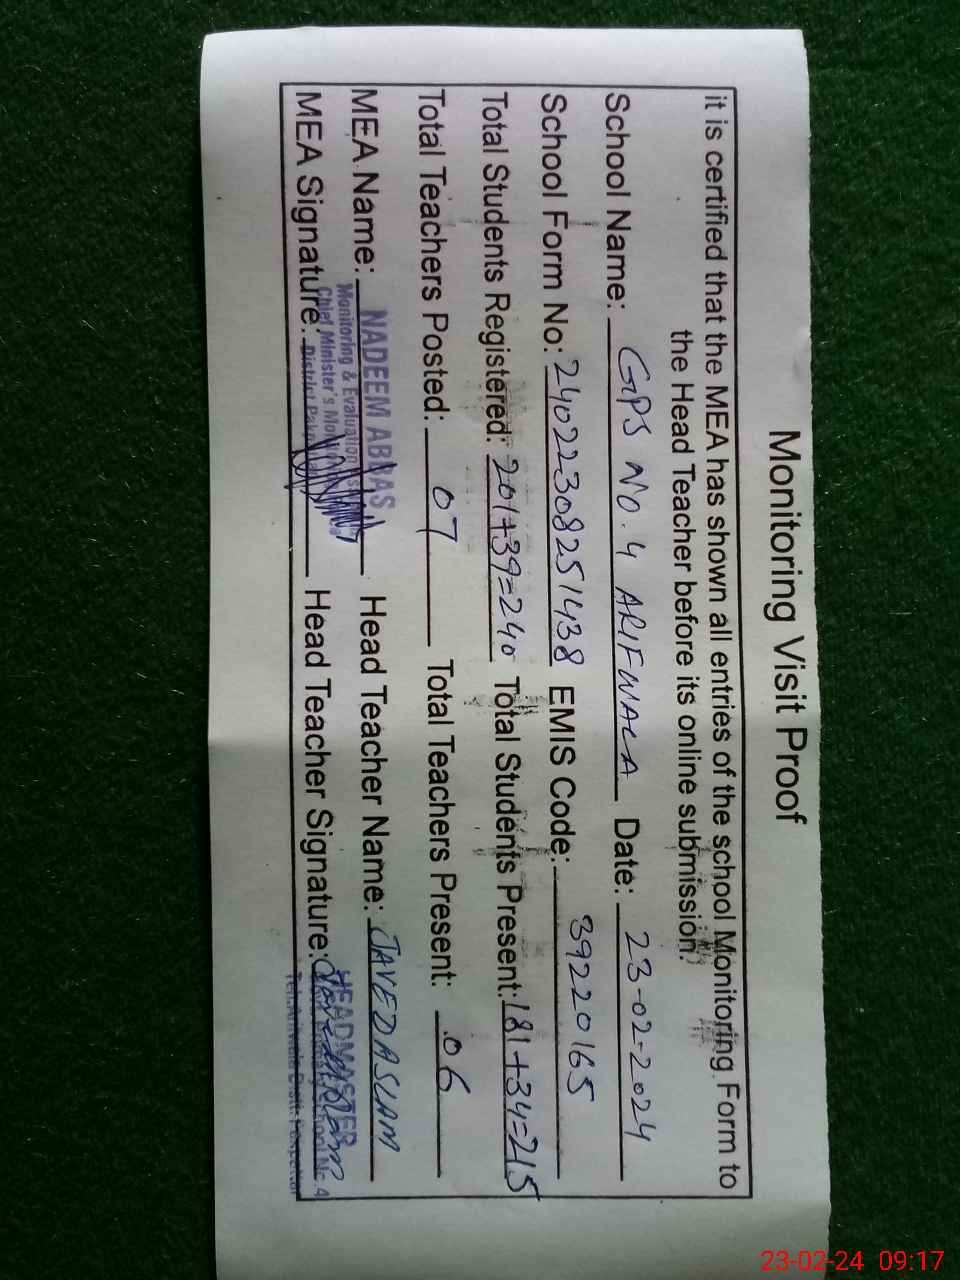 Monitoring Visit Proof
it is certified that the MEA has shown all entries of the school Monitoring Form to
the Head Teacher before its online submission.
School Name: GPS NO. 4 ARIFWALA Date: 23-02-2024
School Form No: 24022308251438 EMIS Code: 39220165
Total Students Registered: 201+39=240 Total Students Present: 181+34=215
Total Teachers Posted: 07 Total Teachers Present: .06
MEA Name: NADEEM ABBAS Head Teacher Name: JAVED ASLAM
Monitoring & Evaluation
MEA Signature: Head Teacher Signature:
Chief Minister's
District
HEADMASTER
School No. 4
23-02-24 09:17